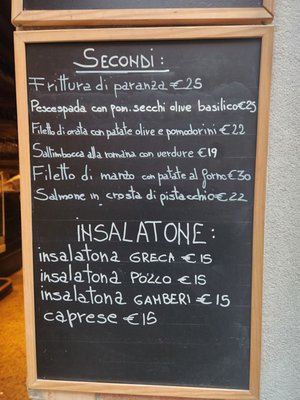 SECONDI:
Frittura di paranza €25
Pescespada con pom. secchi olive basilico €25
Filetto di orata con patate olive e pomodorini €22
Saltimbocca alla romana con verdure €19
Filetto di manzo con patate al forno €30
Salmone in crosta di pistacchio €22
INSALATONE:
insalatona GRECA €15
insalatona POLLO €15
insalatona GAMBERI €15
caprese €15